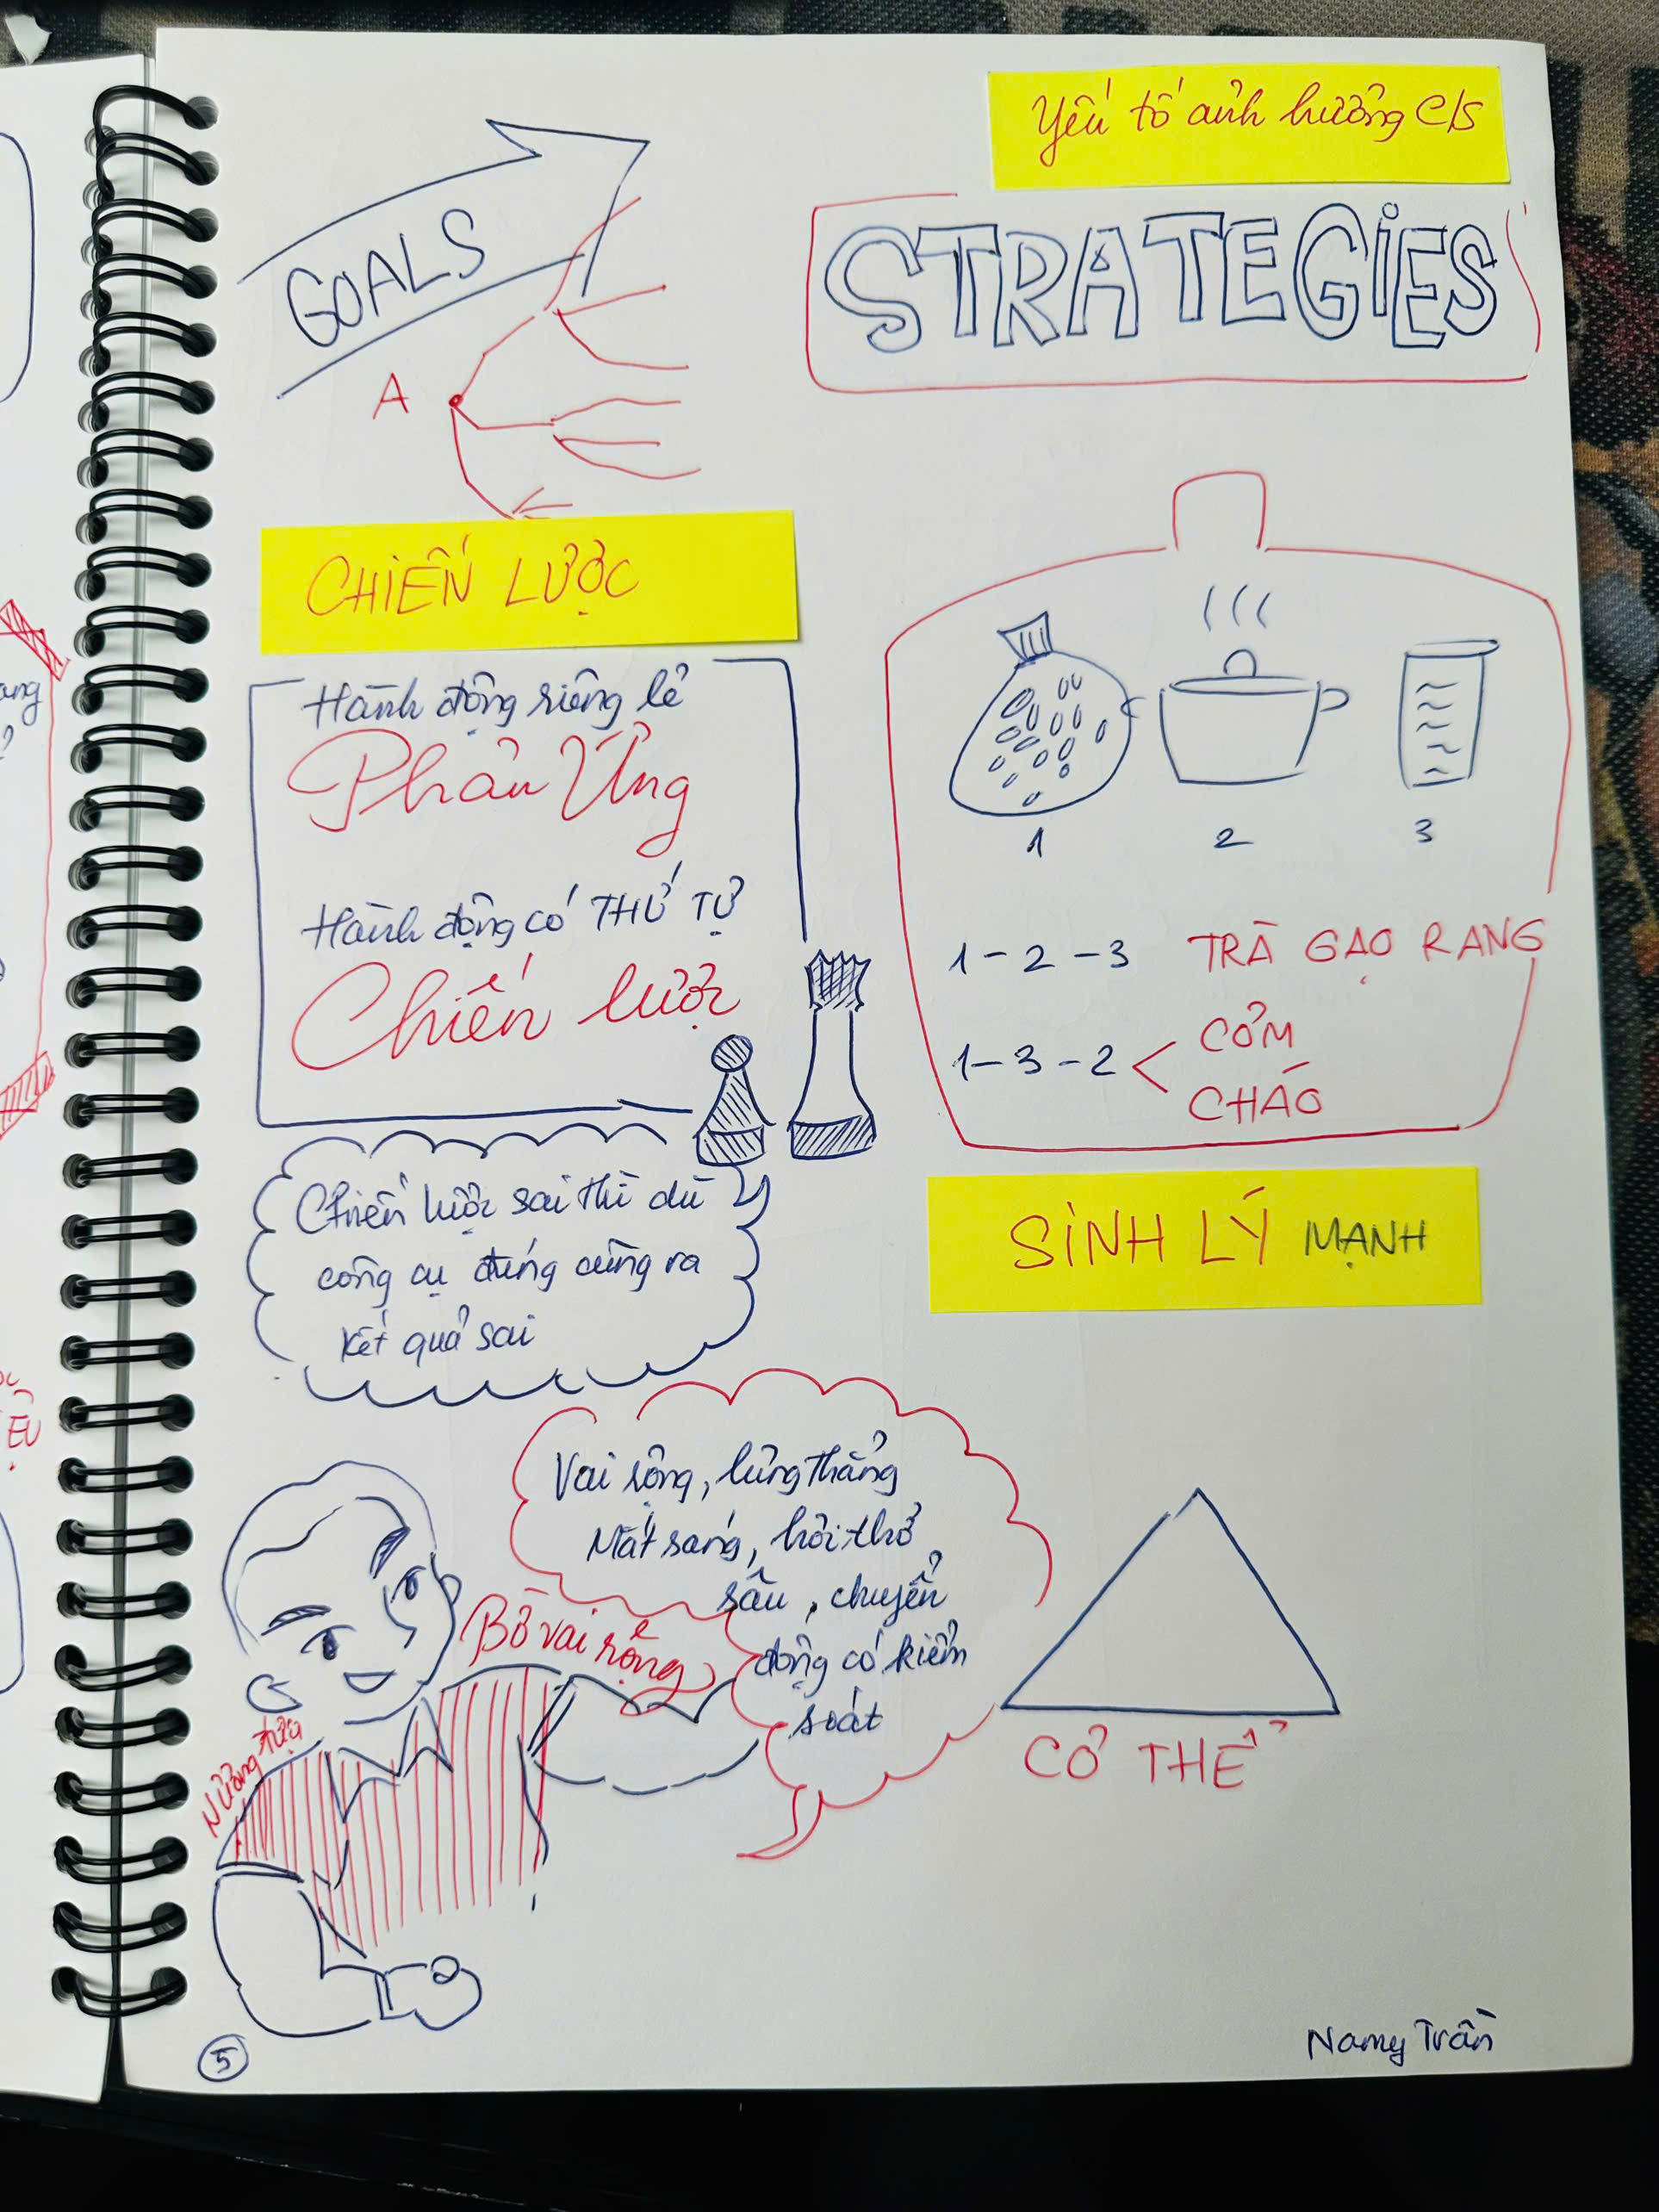 Yếu tố ảnh hưởng C/S
GOALS
STRATEGIES
A
CHIẾN LƯỢC
Hành động riêng lẻ
Phản Ứng
Hành động có THỨ TỰ
Chiến lược
1
2
3
1-2-3 TRÀ GẠO RANG
1-3-2 < CƠM
CHÁO
Chiến lược sai thì dù
công cụ đúng cũng ra
kết quả sai
SINH LÝ MẠNH
Vai rộng, lưng thẳng
Mắt sáng, hơi thở
sâu, chuyển
động có kiểm
soát
Bờ vai rộng
Nương tựa
CƠ THỂ
5
Namy Trần
ang
 EU